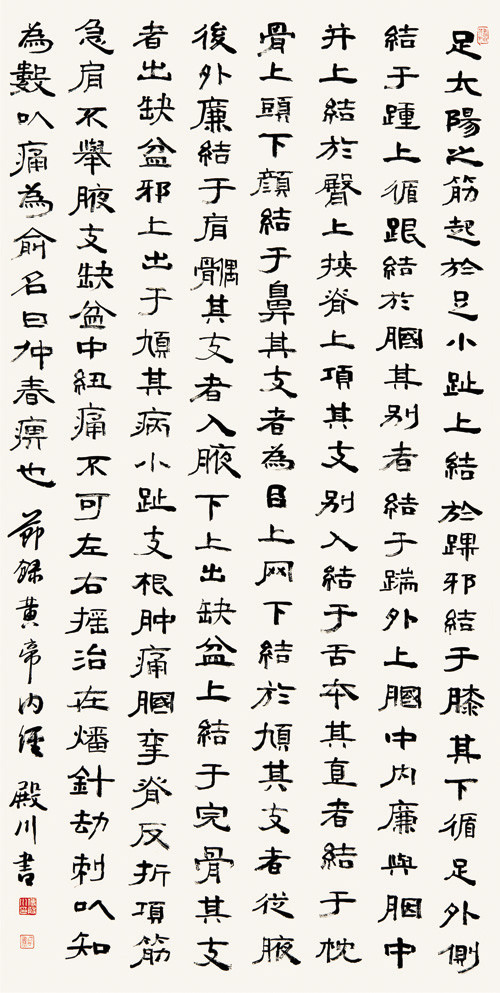 足太陽之筋起於足小趾上結於踝邪結于膝其下循足外側
結于踵上循跟結於膕其别者結于踹外上膕中内廉與膕中
并上結於臀上挾脊上項其支别入結于舌本其直者結于枕
骨上頭下顔結于鼻其支者為目上网下結於頄其支者從腋
後外廉結于肩髃其支者入腋下上出缺盆上結于完骨其支
者出缺盆邪上出于頄其病小趾支根肿痛膕挛脊反折項筋
急肩不舉腋支缺盆中紐痛不可左右摇治在燔針劫刺以知
為數以痛為俞名曰仲春痹也 節録黄帝内經 殿川書